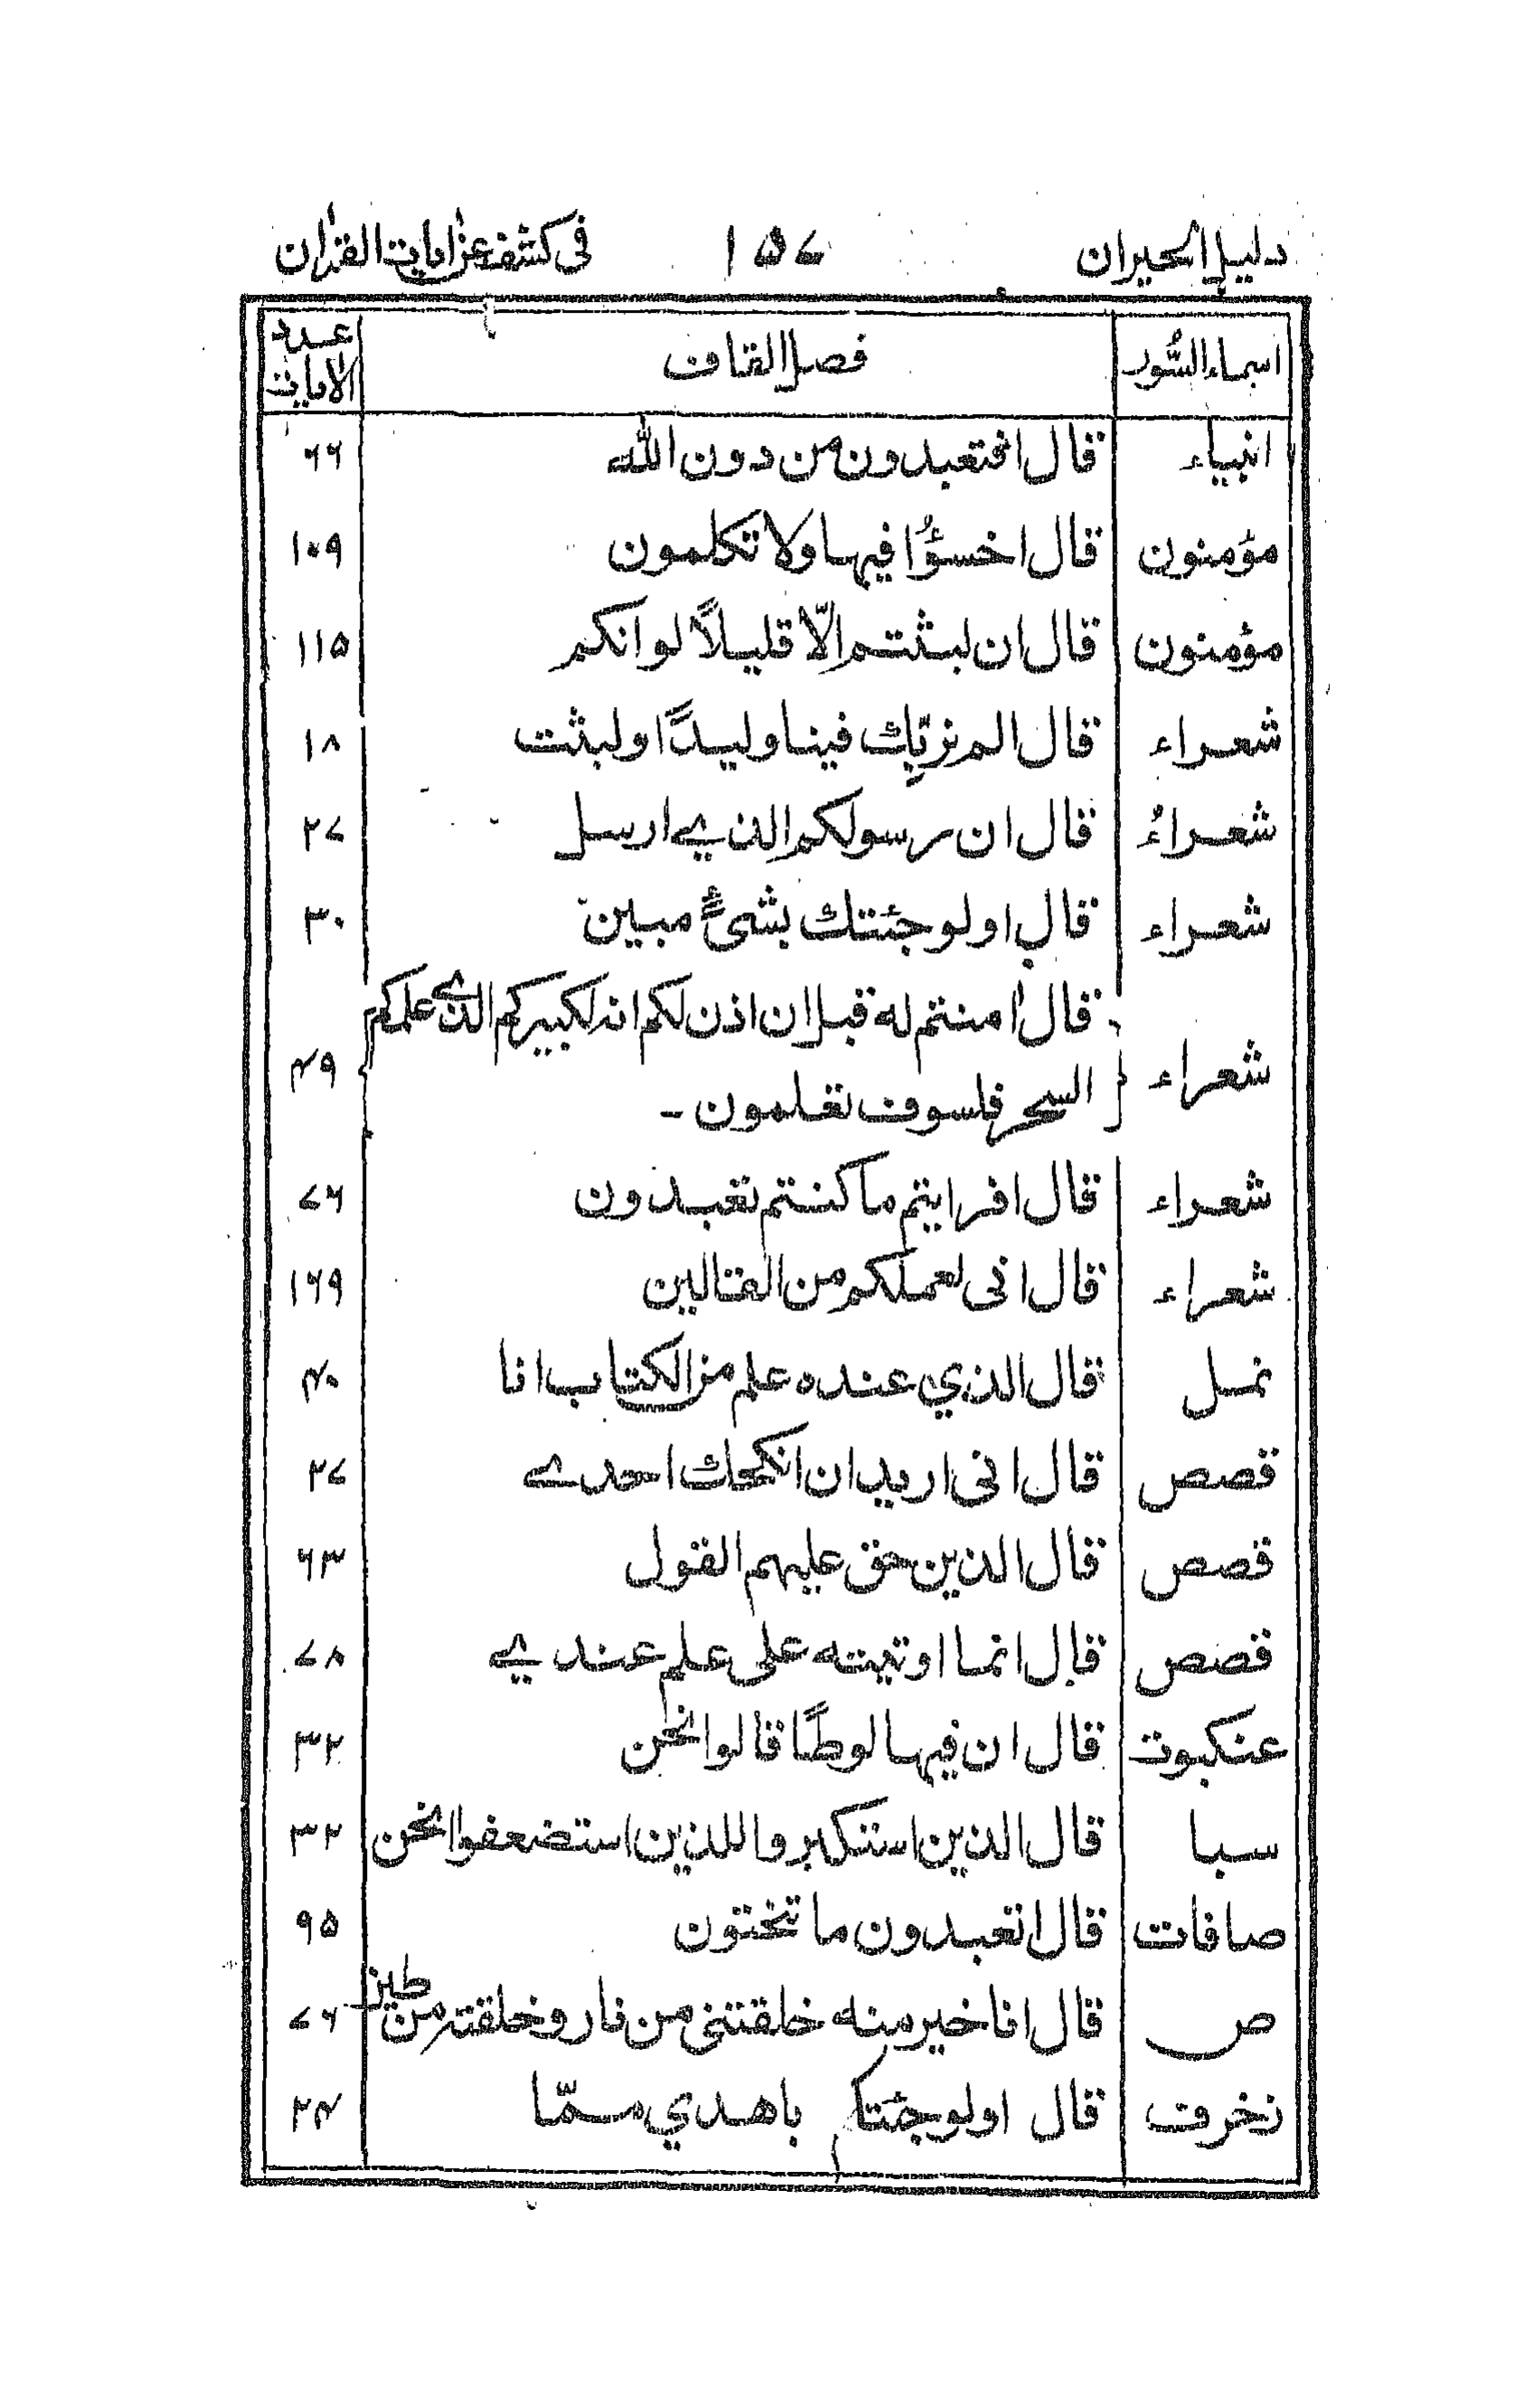 دليل الحيران ١٥٧ في كشف عن اٰيات القراٰن
اسماء السُّور فصل القاف عدد الاٰيات
انبياء قال افتعبدون من دون الله ٦٦
مؤمنون قال اخسؤُا فيها ولا تكلمون ١٠٩
مؤمنون قال ان لبثتم الّا قليلاً لو انكم ١١٥
شعراء قال الم نربّك فينا وليدًا ولبثت ١٨
شعراءُ قال ان رسولكم الذي ارسل ٢٧
شعراء قال اولو جئتك بشئ مبين ٣٠
شعراء قال اٰمنتم له قبل ان اذن لكم انه لكبيركم الذي علمكم
السحر فلسوف تعلمون - ٤٩
شعراء قال افرايتم ما كنتم تعبدون ٧٦
شعراء قال انى لعملكم من القالين ١٦٩
نمل قال الذي عنده علم من الكتاب انا ٤٠
قصص قال انى اريد ان انكحك احدى ٢٧
قصص قال الذين حق عليهم القول ٦٣
قصص قال انما اوتيته على علم عندي ٧٨
عنكبوت قال ان فيها لوطًا قالوا نحن ٣٢
سبا قال الذين استكبروا للذين استضعفوا نحن ٣٢
صافات قال اتعبدون ما تنحتون ٩٥
ص قال انا خير منه خلقتنى من نار وخلقته من طين ٧٦
زخرف قال اولو جئتكم باهدي ممّا ٢٤